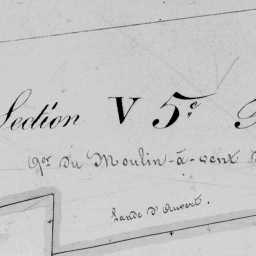 Section V 5.e
Qer du Moulin-à-vent
Lande d'Auvert.